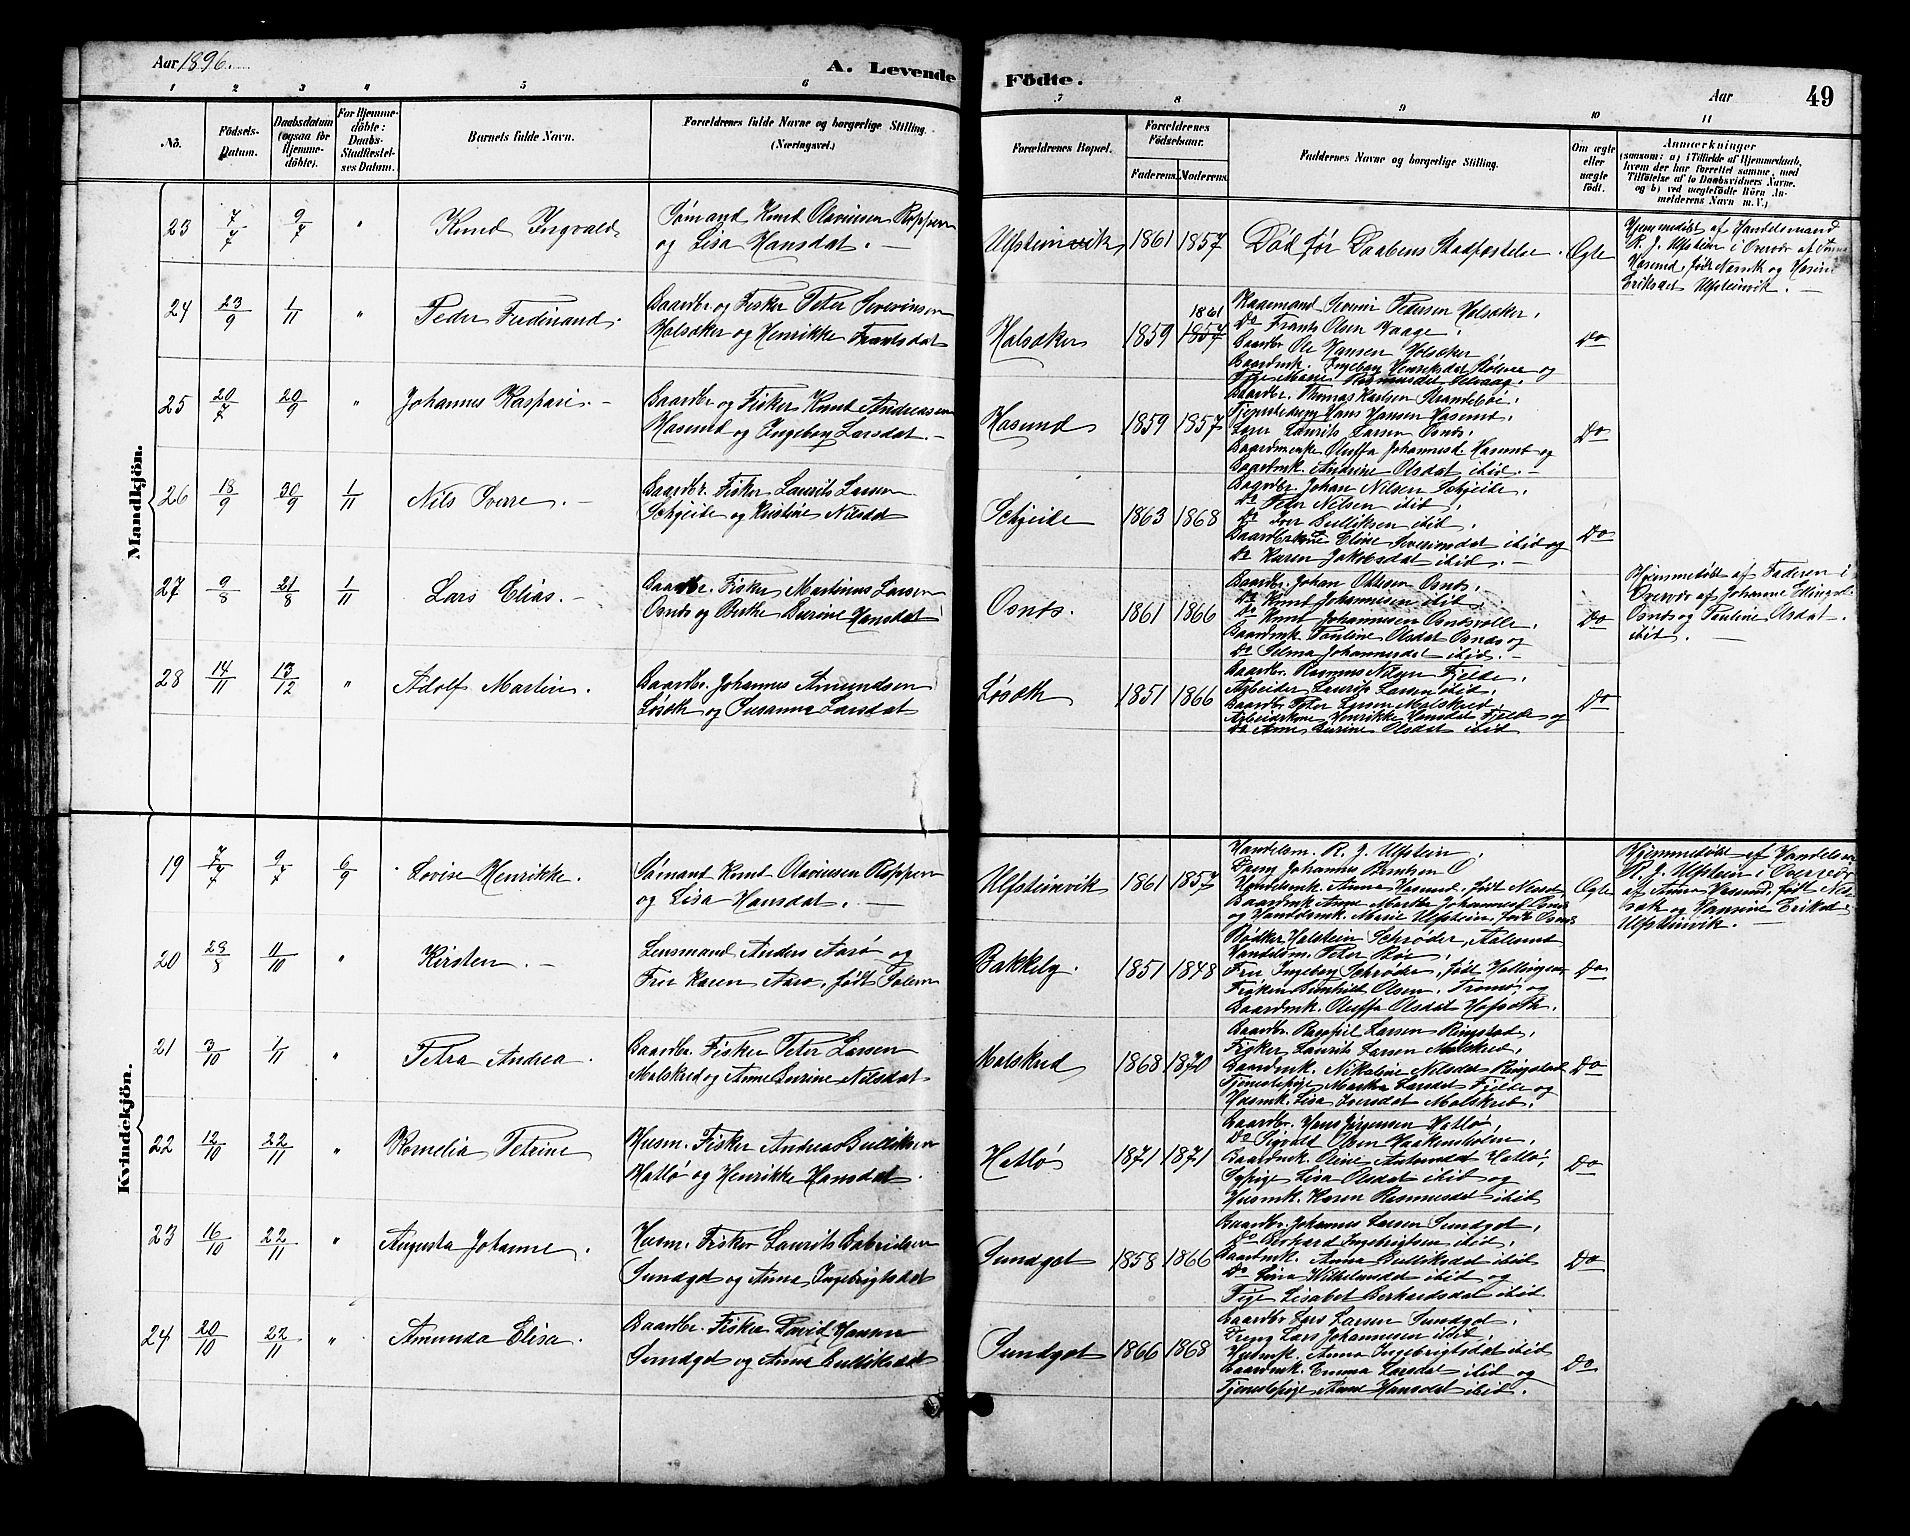 Aar 1896.
A. Levende Födte.
Aar 49
1 2 3 4 5 6 7 8 9 10 11
No.
Födsels-Datum.
Daabsdatum (ogsaa for Hjemme-döbte).
For Hjemme-döbte: Daabs-Stadfæstel-ses Datum.
Barnets fulde Navn.
Forældrenes fulde Navne og borgerlige Stilling. (Næringsvei.)
Forældrenes Bopæl.
Forældrenes Födselsaar.
Faderens. Moderens.
Faddernes Navne og borgerlige Stilling.
Om ægte eller uægte födt.
Anmærkninger
(saasom: a) i Tilfælde af Hjemmedaab,
hvem der har forrettet samme, med
Tilföielse af to Daabsvidners Navne,
og b) ved uægtefödte Börn An-
melderens Navn m. V.)
Mandkjön.
23 7/7 9/7 " Knud Ingvald
Sømand Knud Olaviusen Røppen
og Lisa Hansdat. —
Ulfsteinvik 1861 1857 Død før Daabens Stadfæstelse. Ægte
Hjemmedøbt af Handelsmand
R. J. Ulfstein i Overvær af Anna
Hasund, født Næsvik og Hansine
Eriksdat Ulfsteinvik. —
24 23/9 1/11 " Peder Ferdinand.
Gaardbr og Fisker Peter Severinsen
Holsæker og Henrikke Frantsdat
Holsæker 1859 1861 1857 Do
Kaarmand Severin Pedersen Holsæker,
Do Frants Olsen Vaage,
Gaardbr Ole Hansen Holsæker
Gaardmk. Ingeborg Henriksdat og
Pige Marie Rasmusdat
25 20/7 20/9 " Johannes Kaspar. —
Gaardbr og Fisker Knud Andreassen
Hasund og Ingeborg Larsdat. —
Hasund 1859 1857 Do
Gaardbr. Thomas Karlsen Strandebø,
Tjenestedreng Hans Hansen Hasund,
Lærer Laurits Larsen Osnes,
Gaardmenke Oluffa Johannesd. Hasund og
Gaardmk. Andrine Olsdat ibid. —
26 18/9 30/9 1/11 Nils Sverre. —
Gaardbr. Fisker Laurits Larsen
Schjeide og Kristine Nilsdat
Schjeide 1863 1868 Do
Gaardbr. Johan Nilsen Schjeide,
Do Peter Nilsen ibid,
Do Iver Bulliksen ibid,
Gaardbrkone Eline Severinsdat ibid og
Do Karen Jakobsdat ibid. —
27 9/8 21/8 1/11 Lars Elias. —
Gaardbr. Fisker Martinus Larsen
Osnes og Birthe Gurine Hansdat
Osnes. 1861 1866 Do
Gaardbr. Johan Ottesen Osnes,
Do Knud Johannesen ibid,
Do Knud Johannesen Osnesvolle,
Gaardmk. Pauline Olsdat Osnes og
Do Selma Johannesdat ibid. —
Hjemmedøbt af Faderen i
Overvær af Johanne Elingsd.
Osnes og Pauline Olsdat
ibid. —
28 14/11 13/12 " Adolf Martin.
Gaardbr. Johannes Amundsen
Løseth og Susanna Larsdat
Løseth 1851 1866 Do
Gaardbr. Rasmus Nilsen Fjelde,
Arbeider Laurits Larsen ibid,
Gaardbr. Peter Larsen Malskred,
Arbeiderkone Henrikke Hansdat Fjelde og
Do Anne Gurine Olsdat ibid
Kvindekjön.
19 7/7 9/7 6/9 Lovise Henrikke.
Sømand Knud Olaviusen Røppen
og Lisa Hansdat. —
Ulfsteinvik 1861 1857 Ægte
Handelsm. R. J. Ulfstein,
Dreng Johannes Berntsen
Handelsmk. Anna Hasund, født Næsset
Gaardmk. Anne Martha Johannesd Osnes
og Handelsmk. Marie Ulfstein, født Osnes
Hjemmedøbt af Handelsm
R. J. Ulfstein i Overvær
af Anna Hasund, født Næs-
vik og Hansine Eriksd.
Ulfsteinvik. —
20 28/8 11/10 " Kirsten. —
Lensmand Anders Aarø og
Fru Karen Aarø, født Solem
Bakkely. 1851 1848 Do
Bødker Halstein Schrøder, Aalesund
Handelsm. Peter Röe,
Fru Ingeborg Schrøder, født
Frøken Bernhild Olsen, Tromsø, og
Gaardmk. Oluffa Olsdat Hofseth.
21 3/10 1/11 " Petra Andrea.
Gaardbr. Fisker Peter Larsen
Malskred og Anne Gurine Nilsdat
Malskred 1868 1870 Do
Gaardbr. Larsen Ringstad,
Fisker Laurits Larsen Malskred,
Gaardmk. Nikoline Nilsdat Ringstad
Tjenestepige Martha Larsdat Fjelde og
Husmk. Lisa Iversdat Malskred.
22 12/10 22/11 " Kornelia Petrine
Husm. Fisker Andreas Bulliksen
Hatlø og Henrikke Hansdat.
Hatlø 1871 1871 Do
Gaardbr. Hans Jørgensen Hatlø,
Do Sigvald Olsen Haakensholm,
Gaardmk. Oline Antonsdat Hatlø,
Sypige Lisa Olsdat ibid og
Husmk. Karen Rasmusdat ibid
23 16/10 22/11 " Augusta Johanne.
Husm. Fisker Laurits Gabrielsen
Sundgot og Anna Ingebrigtsdat
Sundgot 1858 1866 Do
Gaardbr. Johannes Larsen Sundgot,
Do Berhard Ingebrigtsen ibid,
Gaardmk. Anna Bulliksdat ibid
Do Lina Wilhelmsdat ibid og
Pige Lisabet Berhardsdat ibid
24 20/10 22/11 " Amunda Elisa.
Gaardbr. Fisker David Hansen
Sundgot og Anna Bulliksdat
Sundgot 1866 1868 Do
Gaardbr Lars Larsen Sundgot,
Dreng Lars Johannesen ibid,
Husmk. Anna Ingebrigtsdat ibid
Gaardmk. Emma Larsdat ibid og
Tjenestepige Anne Hansdat ibid.